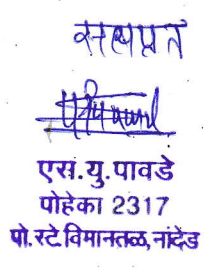 सत्यप्रत
एस.यु.पावडे
पोहेका 2317
पो.स्टे विमानतळ,नांदेड